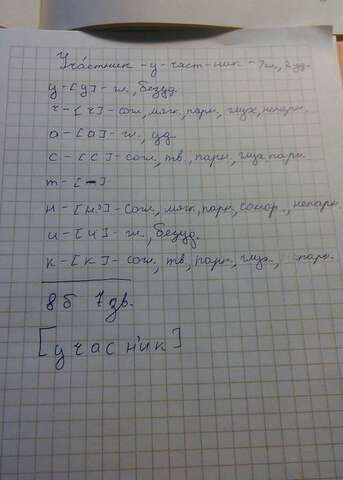 Уча́стник - у-част-ник - 3 гл., 2 уд.
у-[у]-гл., безуд.
ч-[ч]-согл., мягк., парн., глух., непарн.
а-[а]-гл., уд.
с-[с]-согл., тв., парн., глух., парн.
т-[-]
н-[н']-согл., мягк., парн., сонор., непарн.
и-[и]-гл., безуд.
к-[к]-согл., тв., парн., глух., парн.
8б 7зв.
[учасн'ик]